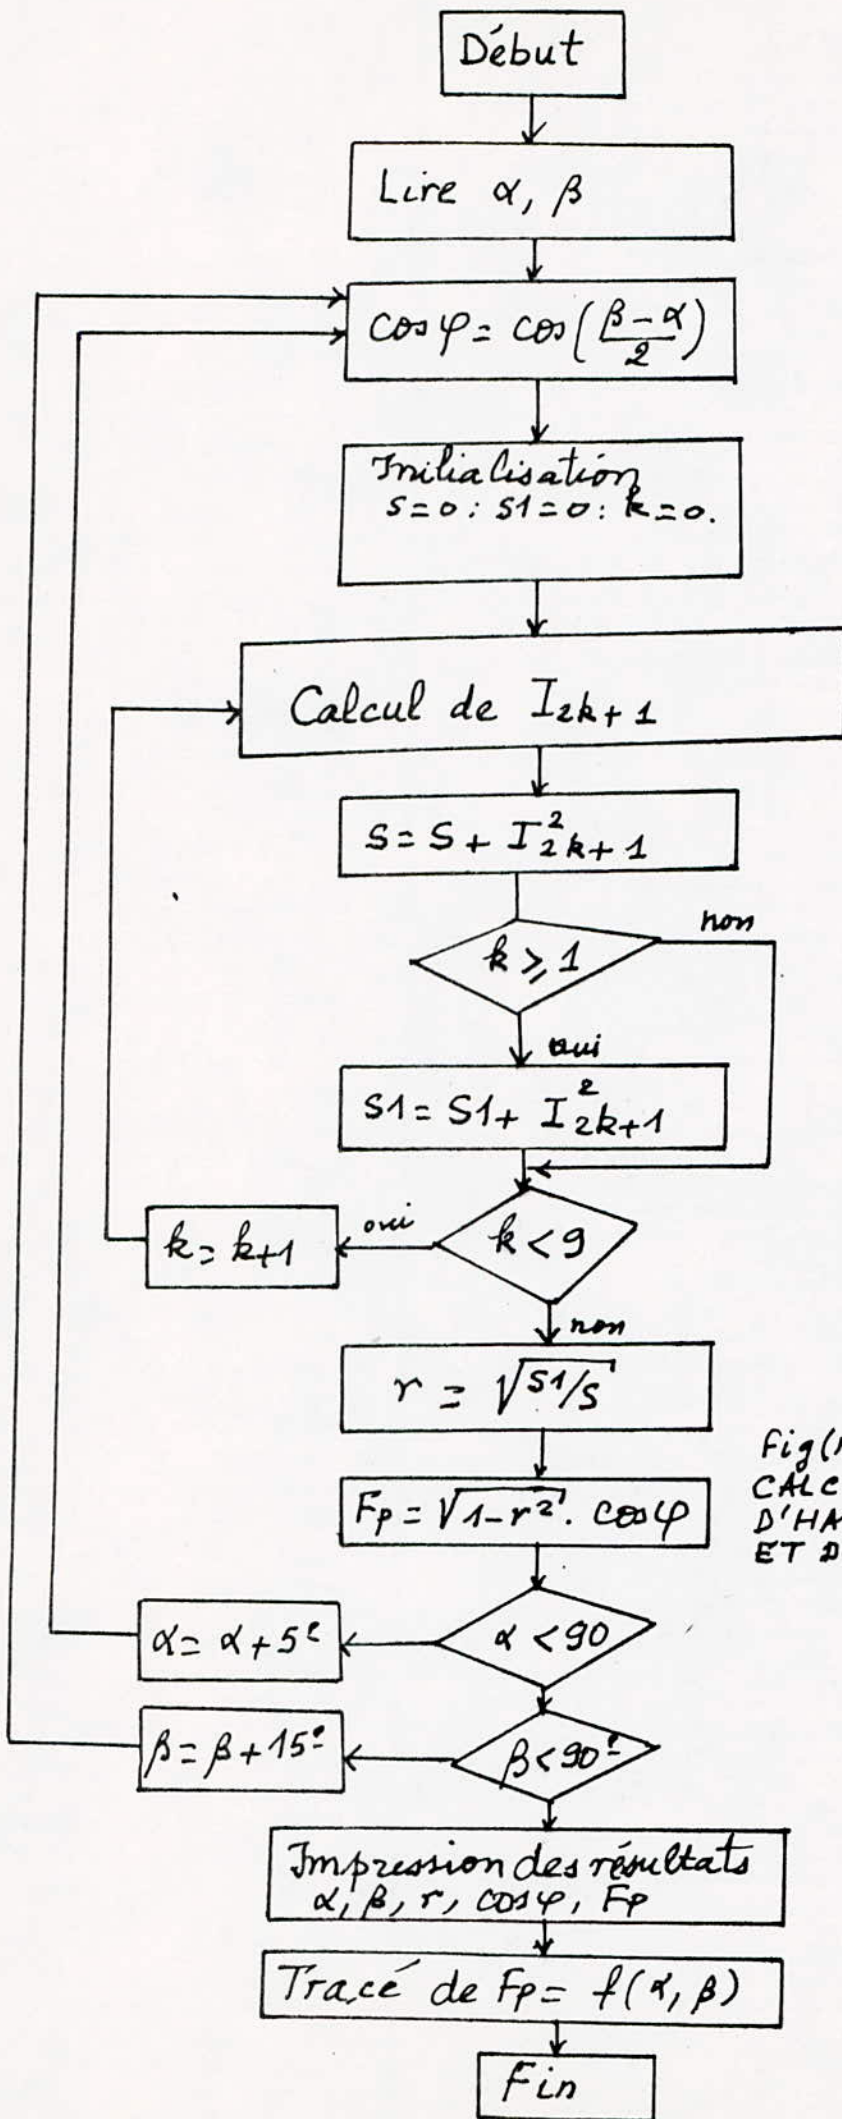 Début
Lire α, β
cos φ = cos(β - α / 2)
Initialisation
s=0 : s1=0 : k=0.
Calcul de I2k+1
S = S + I²2k+1
k ≥ 1
non
oui
S1 = S1 + I²2k+1
k < 9
oui
k = k+1
non
r = √S1/S
Fp = √1-r² . cos φ
Fig(
CALC
D'HA
ET D
α < 90
α = α + 5°
β < 90°
β = β + 15°
Impression des résultats
α, β, r, cos φ, Fp
Tracé de Fp = f(α, β)
Fin